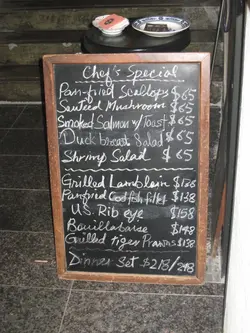 Chef's Special
Pan-fried Scallops $65
Sauteed Mushroom $65
Smoked Salmon w/Toast $65
Duck breast Salad $65
Shrimp Salad $65
Grilled Lamb loin $128
Panfried Codfish fillet $138
U.S. Rib eye $158
Bouillabaise $148
Grilled tiger Prawns $138
Dinner Set $218/248